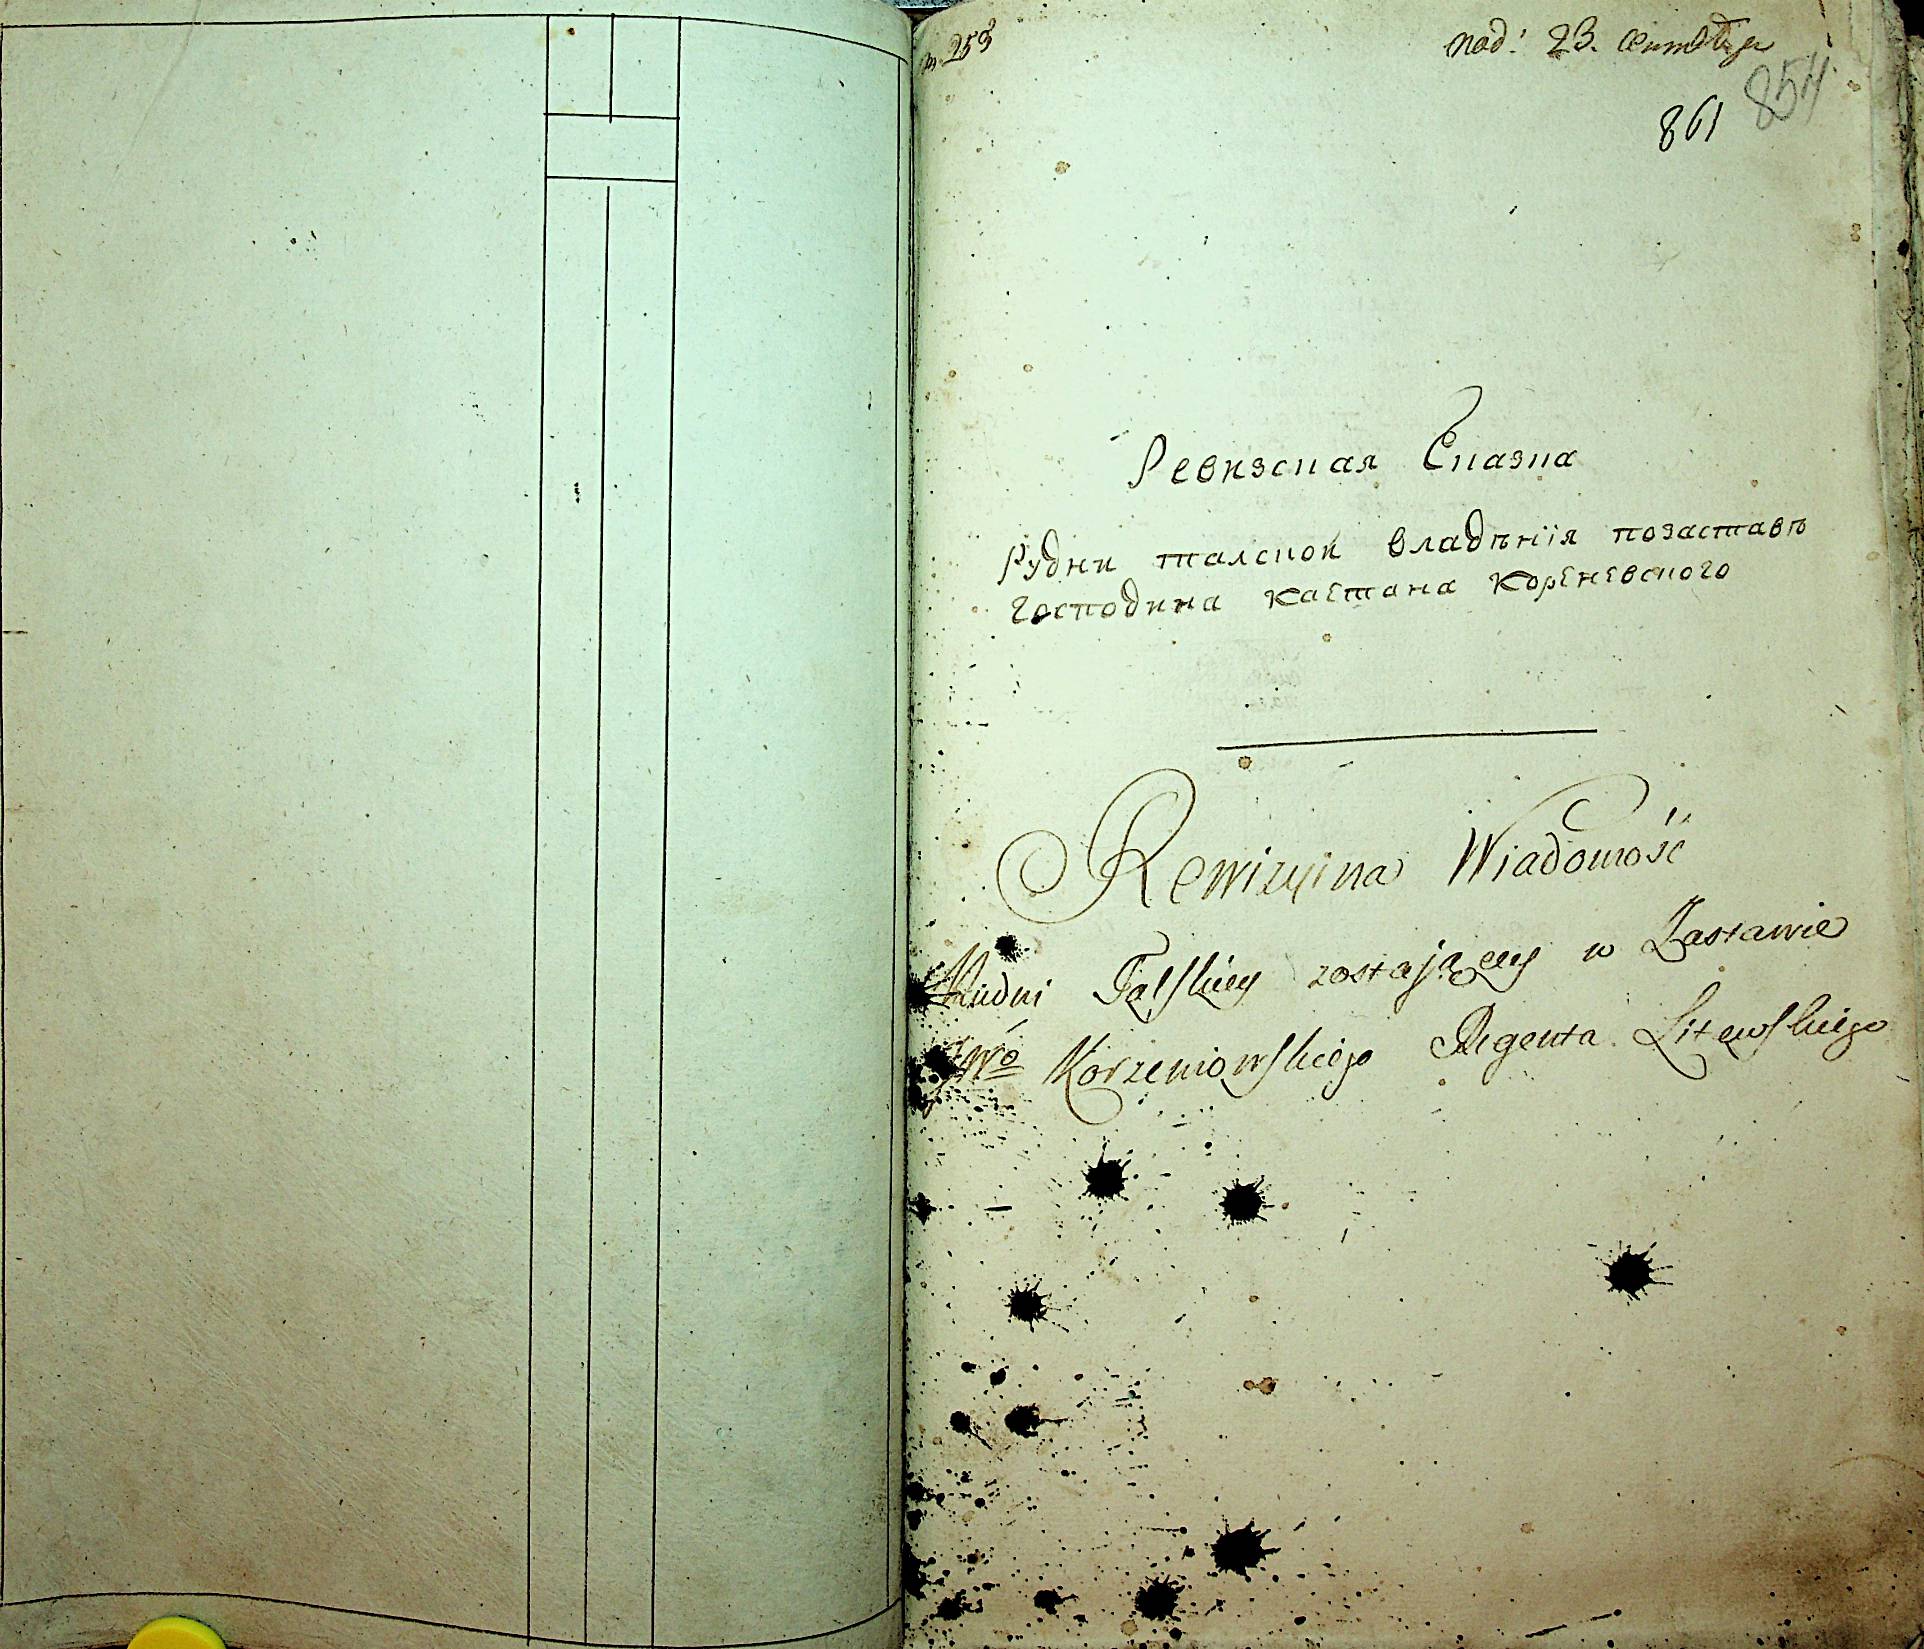 № 253
под: 23. сентября
861 854
Ревизская Сказка
Рудни талской владѣнія позаставѣ
Господина каетана кореневского
Rewizyina Wiadomość
Rudni Talskiey zostającey w Zastawie
JWo Korzeniowskiego Regenta Litewskiego